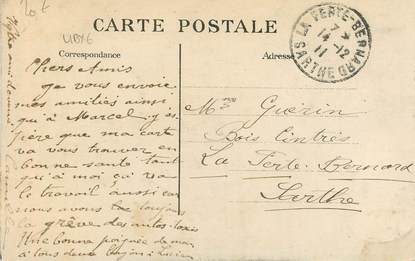 CARTE POSTALE
Correspondance
Adresse
LA FERTE-BERNARD
SARTHE
11
Chers Amis
Je vous envoie
mes amitiés ainsi
qu'à Marcel j'es
père que ma carte
va vous trouver en
bonne santé tant
qu'à moi çi va
le travail aussi car
nous avons toujours
la grève des autos-taxis
Une bonne poignée de main
à tous deux
Guérin
Bois Cintrés
La Ferté-Bernard
Sarthe